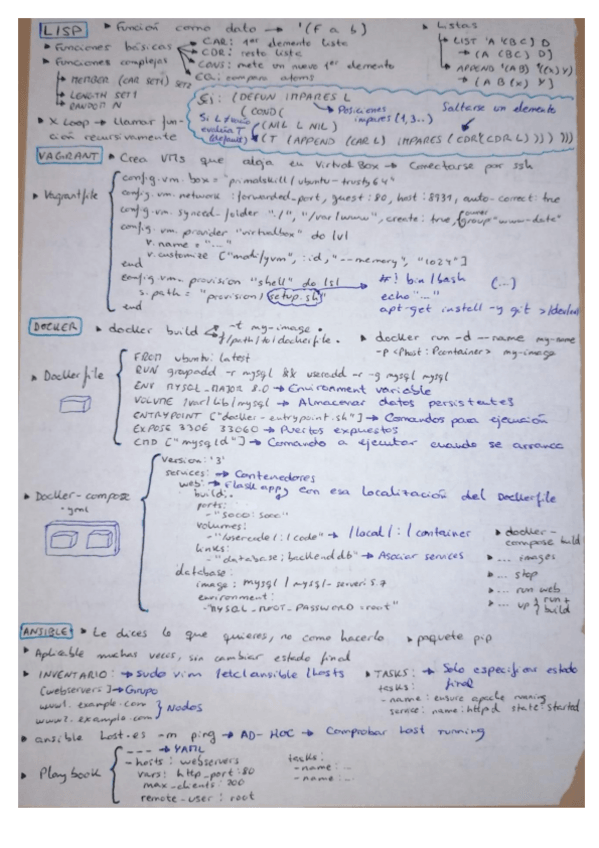 LISP ▸ Función como dato → '(F a b) ▸ Listas
▸ Funciones básicas CAR: 1er elemento lista LIST 'A '(B C) D
CDR: resto lista → (A (B C) D)
▸ Funciones complejas CONS: mete un nuevo 1er elemento APPEND '(A B) '((X) Y)
EQ: compara atoms → (A B (X) Y)
MEMBER (CAR SET1) SET2
LENGTH SET1
RANDOM N
▸ X Loop → Llamar función recursivamente
Ej: (DEFUN IMPARES L
(COND( → Posiciones impares (1,3..) Saltarse un elemento
Si L vacío (NIL L NIL)
evalúa T (default) (T (APPEND (CAR L) IMPARES (CDR(CDR L)))) )))
VAGRANT ▸ Crea VMs que aloja en Virtual Box → Conectarse por ssh
▸ Vagrantfile
config.vm.box = "primalskill/ubuntu-trusty64"
config.vm.network :forwarded_port, guest:80, host:8931, auto-correct: true
config.vm.synced-folder "./", "/var/www", create: true, owner group "www-data"
config.vm.provider "virtualbox" do |v|
v.name = "..."
v.customize ["modifyvm", :id, "--memory", "1024"]
end
config.vm.provision "shell" do |s| → #! bin/bash (...)
s.path = "provision/setup.sh" echo "..."
end apt-get install -y git >/dev/null
DOCKER ▸ docker build -t my-image . ▸ docker run -d --name my-name
-f /path/to/dockerfile . -p <Phost:Pcontainer> my-image
▸ Dockerfile
FROM ubuntu:latest
RUN groupadd -r mysql && useradd -r -g mysql mysql
ENV MYSQL_MAJOR 8.0 → Environment variable
VOLUME /var/lib/mysql → Almacenar datos persistentes
ENTRYPOINT ["docker-entrypoint.sh"] → Comandos para ejecución
EXPOSE 3306 33060 → Puertos expuestos
CMD ["mysqld"] → Comando a ejecutar cuando se arranca
▸ Docker-compose .yml
version: '3'
services: → Contenedores
web: → Flask app con esa localización del Dockerfile
build: .
ports:
- "5000:5000"
volumes:
- "/usercode/:/code" → /local/:/container ▸ docker-compose build
links: ▸ ... images
- "database:backenddb" → Asociar services
database: ▸ ... stop
image: mysql/mysql-server:5.7 ▸ ... run web
environment: ▸ ... up } run + build
- "MYSQL_ROOT_PASSWORD=root"
ANSIBLE ▸ Le dices lo que quieres, no como hacerlo ▸ paquete pip
▸ Aplicable muchas veces, sin cambiar estado final
▸ INVENTARIO: → sudo vim /etc/ansible/hosts ▸ TASKS: → Solo especificar estado final
[webservers] → Grupo tasks:
www1.example.com - name: ensure apache running
www2.example.com } Nodos service: name:httpd state:started
▸ ansible host-es -m ping → AD-HOC → Comprobar host running
▸ Playbook
--- → YAML
- hosts: webservers tasks:
vars: http_port:80 - name: ...
max_clients: 200 - name: ...
remote-user: root